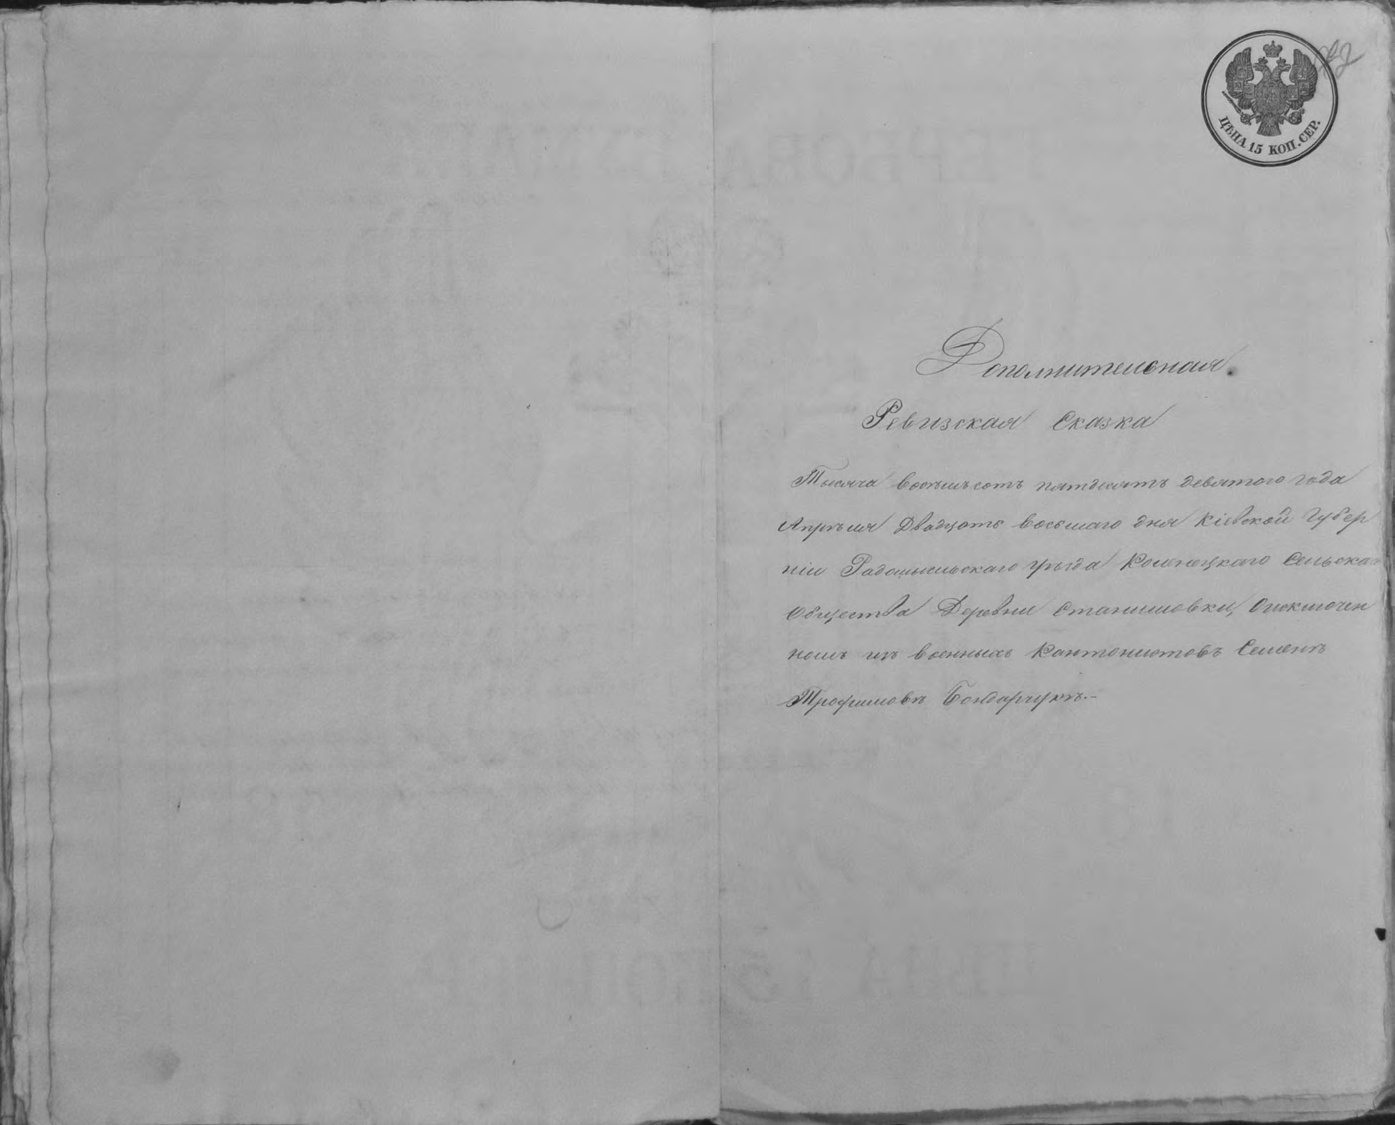 ЦѢНА 15 КОП. СЕР.
Дополнительная
Ревизская Сказка
Тысяча восемьсотъ пятдесятъ девятого года
Апрѣля Двадцать восьмаго дня Кіевской Губер
ніи Радомысльскаго уѣзда Сельска
Общества Деревни Станишовки, О исключен
номъ изъ военныхъ Кантонистовъ Семенѣ
Трофимовѣ Бондарчукѣ.—